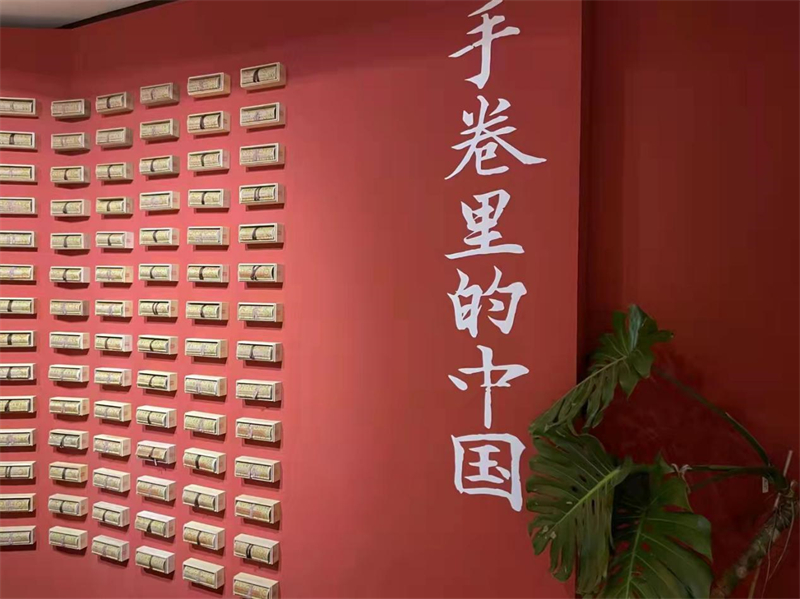 手卷里的中国